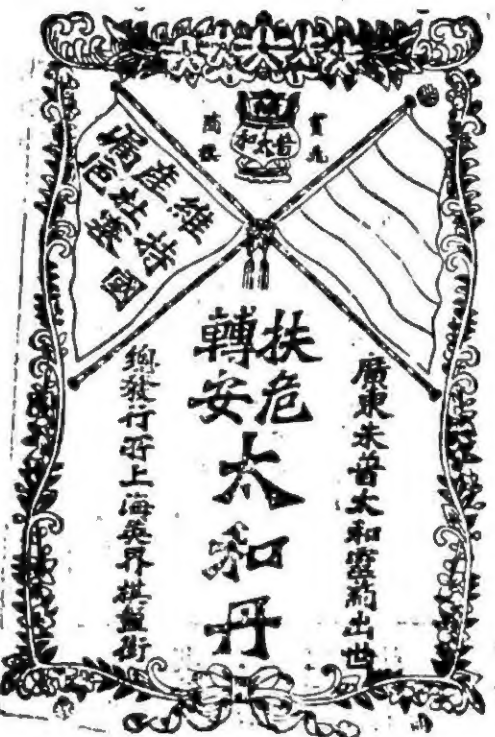 寶鼎
商標
普太和
維持國
產杜塞
漏卮
廣東朱普太和靈葯出世
扶危
轉安
太和丹
總發行所上海英界棋盤街